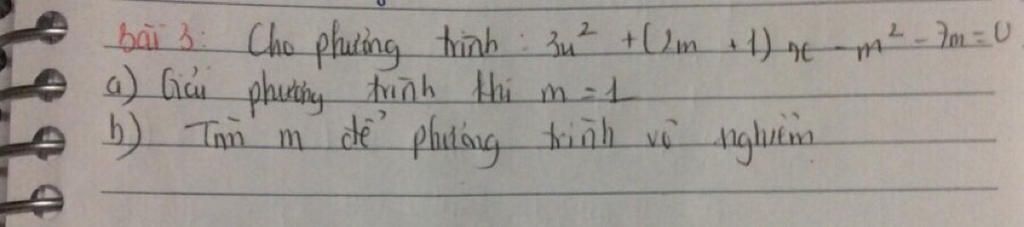 Bài 3: Cho phương trình: 3x² + (2m + 1)x - m² - 7m = 0
a) Giải phương trình khi m = 1
b) Tìm m để phương trình vô nghiệm